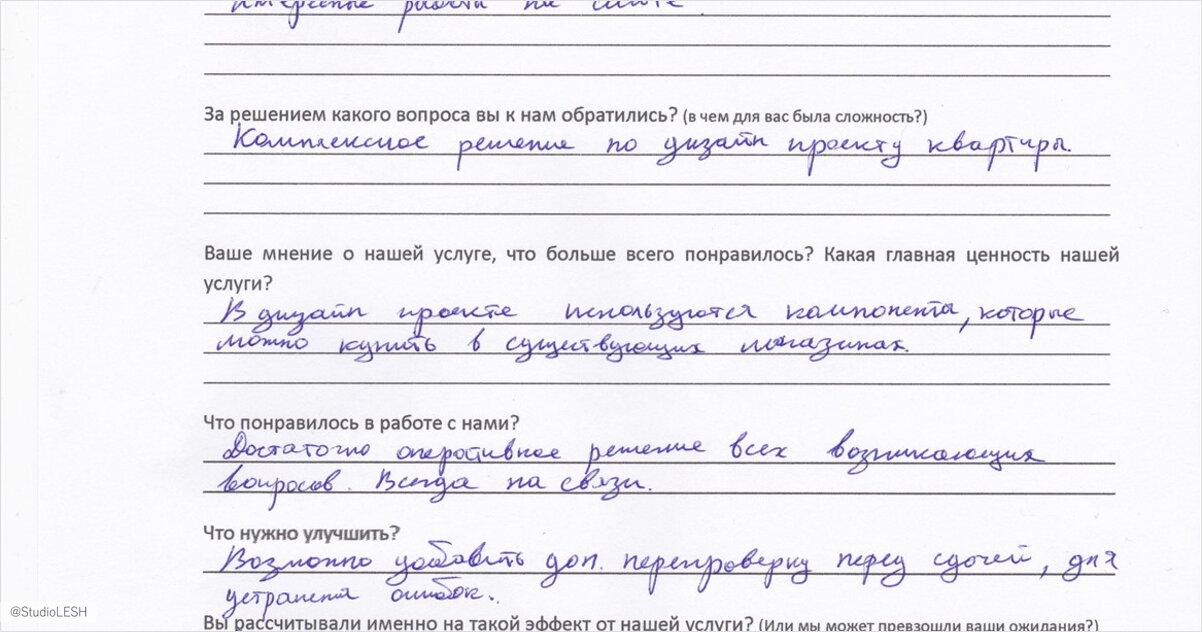 интересные работы на сайте.
За решением какого вопроса вы к нам обратились? (в чем для вас была сложность?)
Комплексное решение по дизайн проекту квартиры.
Ваше мнение о нашей услуге, что больше всего понравилось? Какая главная ценность нашей
услуги?
В дизайн проекте используются компоненты, которые
можно купить в существующих магазинах.
Что понравилось в работе с нами?
Достаточно оперативное решение всех возникающих
вопросов. Всегда на связи.
Что нужно улучшить?
Возможно добавить доп. перепроверку перед сдачей, для
устранения ошибок.
@StudioLESH
Вы рассчитывали именно на такой эффект от нашей услуги? (Или мы может превзошли ваши ожидания?)